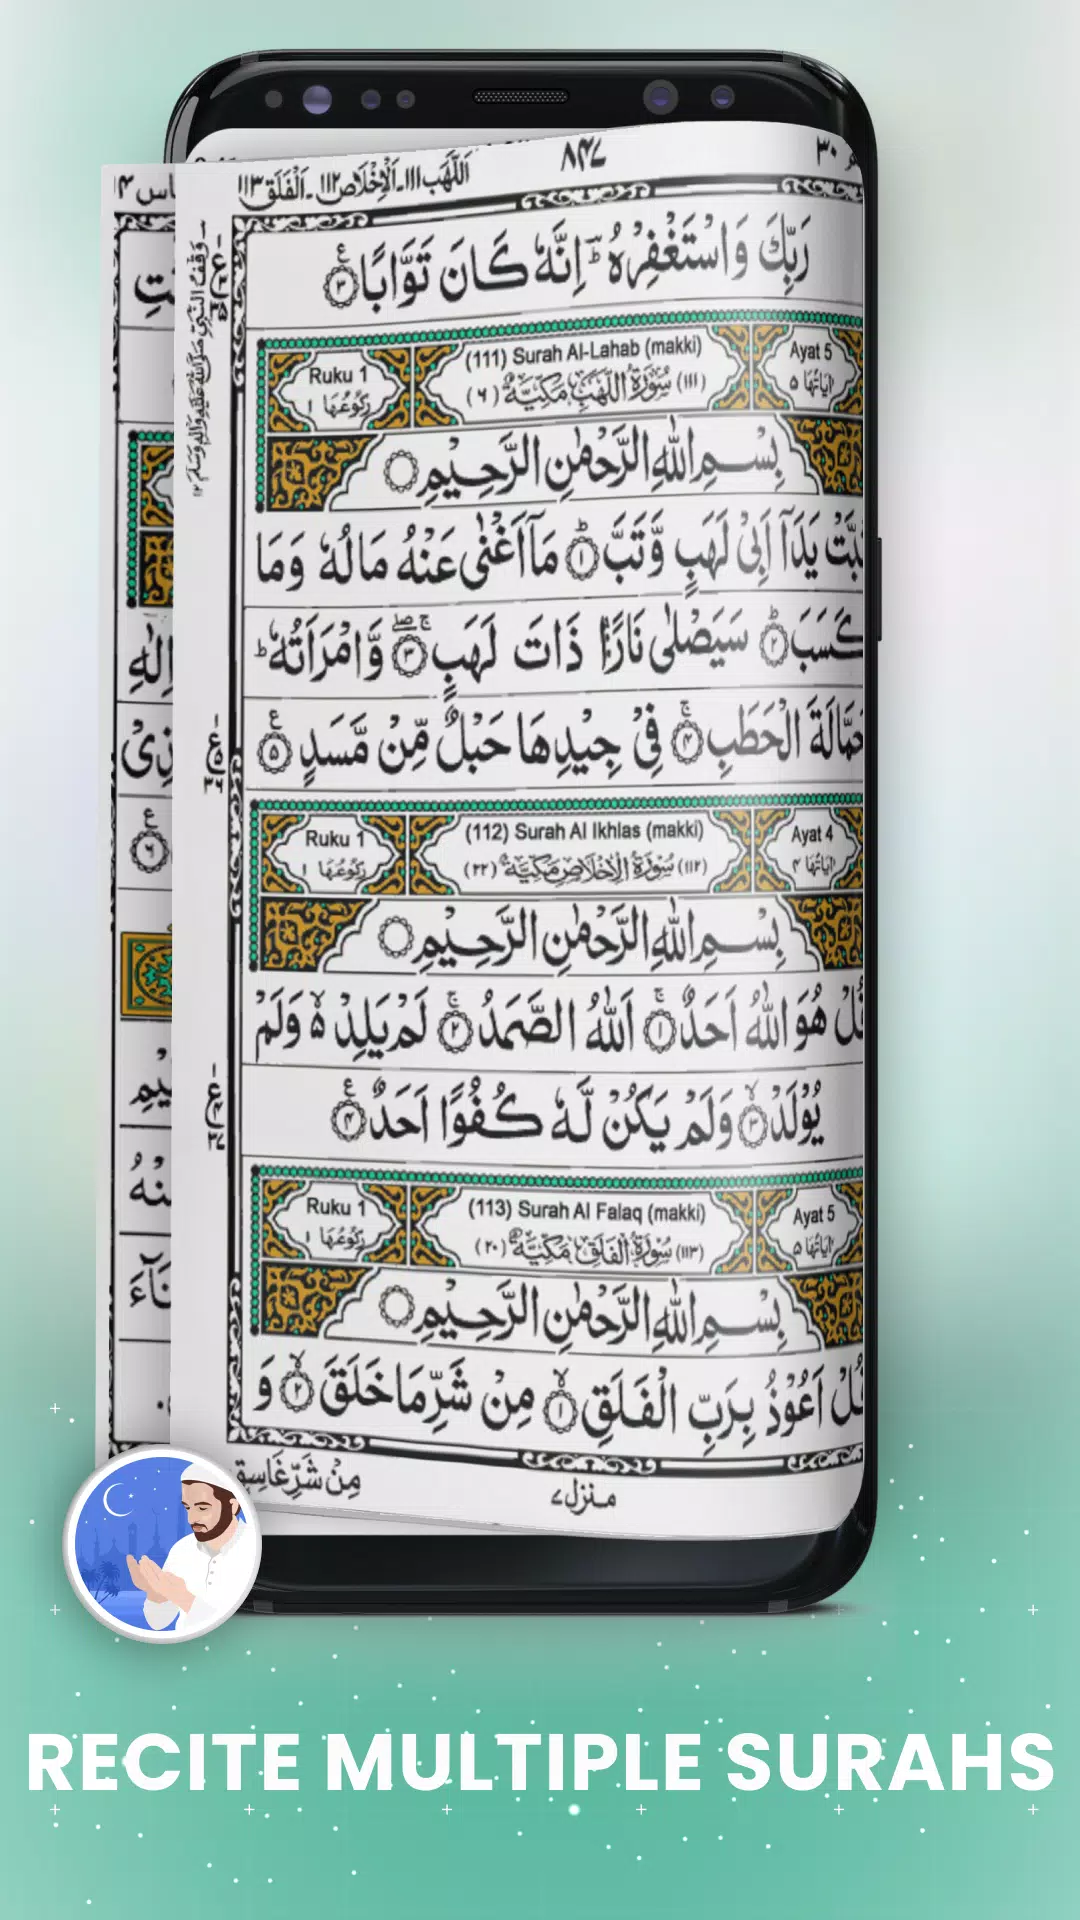 اَللَّهَب١١١۔اَلْاِخْلَاص١١٢۔اَلْفَلَق١١٣
٨٤٧
٣٠
رَبِّكَ وَاسْتَغْفِرْهُ ؕ اِنَّهٗ كَانَ تَوَّابًا ﴿٣﴾ ع
Ruku 1
(111) Surah Al-Lahab (makki)
Ayat 5
رُكُوْعُهَا ١
(١١١) سُوْرَةُ اللَّهَبِ مَكِّيَّةٌ (٦)
اٰيَاتُهَا ٥
بِسْمِ اللّٰهِ الرَّحْمٰنِ الرَّحِيْمِ
تَبَّتْ يَدَاۤ اَبِيْ لَهَبٍ وَّتَبَّ ؕ ﴿١﴾ مَاۤ اَغْنٰى عَنْهُ مَالُهٗ وَمَا
كَسَبَ ؕ ﴿٢﴾ سَيَصْلٰى نَارًا ذَاتَ لَهَبٍ ﴿٣﴾ ۚ ۖ وَّامْرَاَتُهٗ ؕ
حَمَّالَةَ الْحَطَبِ ۚ ﴿٤﴾ فِيْ جِيْدِهَا حَبْلٌ مِّنْ مَّسَدٍ ﴿٥﴾ ع
Ruku 1
(112) Surah Al Ikhlas (makki)
Ayat 4
رُكُوْعُهَا ١
(١١٢) سُوْرَةُ الْاِخْلَاصِ مَكِّيَّةٌ (٢٢)
اٰيَاتُهَا ٤
بِسْمِ اللّٰهِ الرَّحْمٰنِ الرَّحِيْمِ
قُلْ هُوَ اللّٰهُ اَحَدٌ ۚ ﴿١﴾ اَللّٰهُ الصَّمَدُ ۚ ﴿٢﴾ لَمْ يَلِدْ ۙ۬ وَلَمْ
يُوْلَدْ ۙ ﴿٣﴾ وَلَمْ يَكُنْ لَّهٗ كُفُوًا اَحَدٌ ﴿٤﴾ ع
Ruku 1
(113) Surah Al Falaq (makki)
Ayat 5
رُكُوْعُهَا ١
(١١٣) سُوْرَةُ الْفَلَقِ مَكِّيَّةٌ (٢٠)
اٰيَاتُهَا ٥
بِسْمِ اللّٰهِ الرَّحْمٰنِ الرَّحِيْمِ
قُلْ اَعُوْذُ بِرَبِّ الْفَلَقِ ۙ ﴿١﴾ مِنْ شَرِّ مَا خَلَقَ ۙ ﴿٢﴾ وَ
مِنْ شَرِّ غَاسِقٍ
منزل٧
RECITE MULTIPLE SURAHS